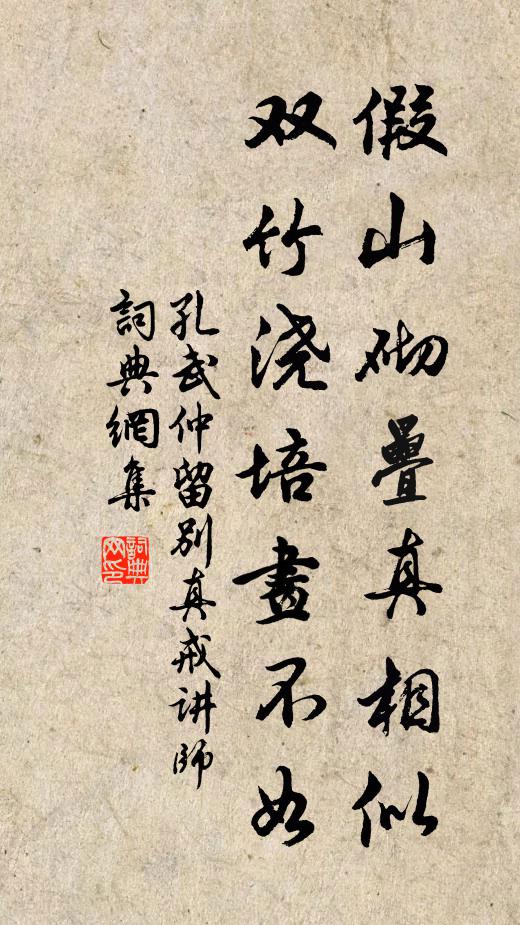 假山砌疊真相似
双竹浇培畫不如
孔武仲留别真戒讲師
詞典網集
詞典网印